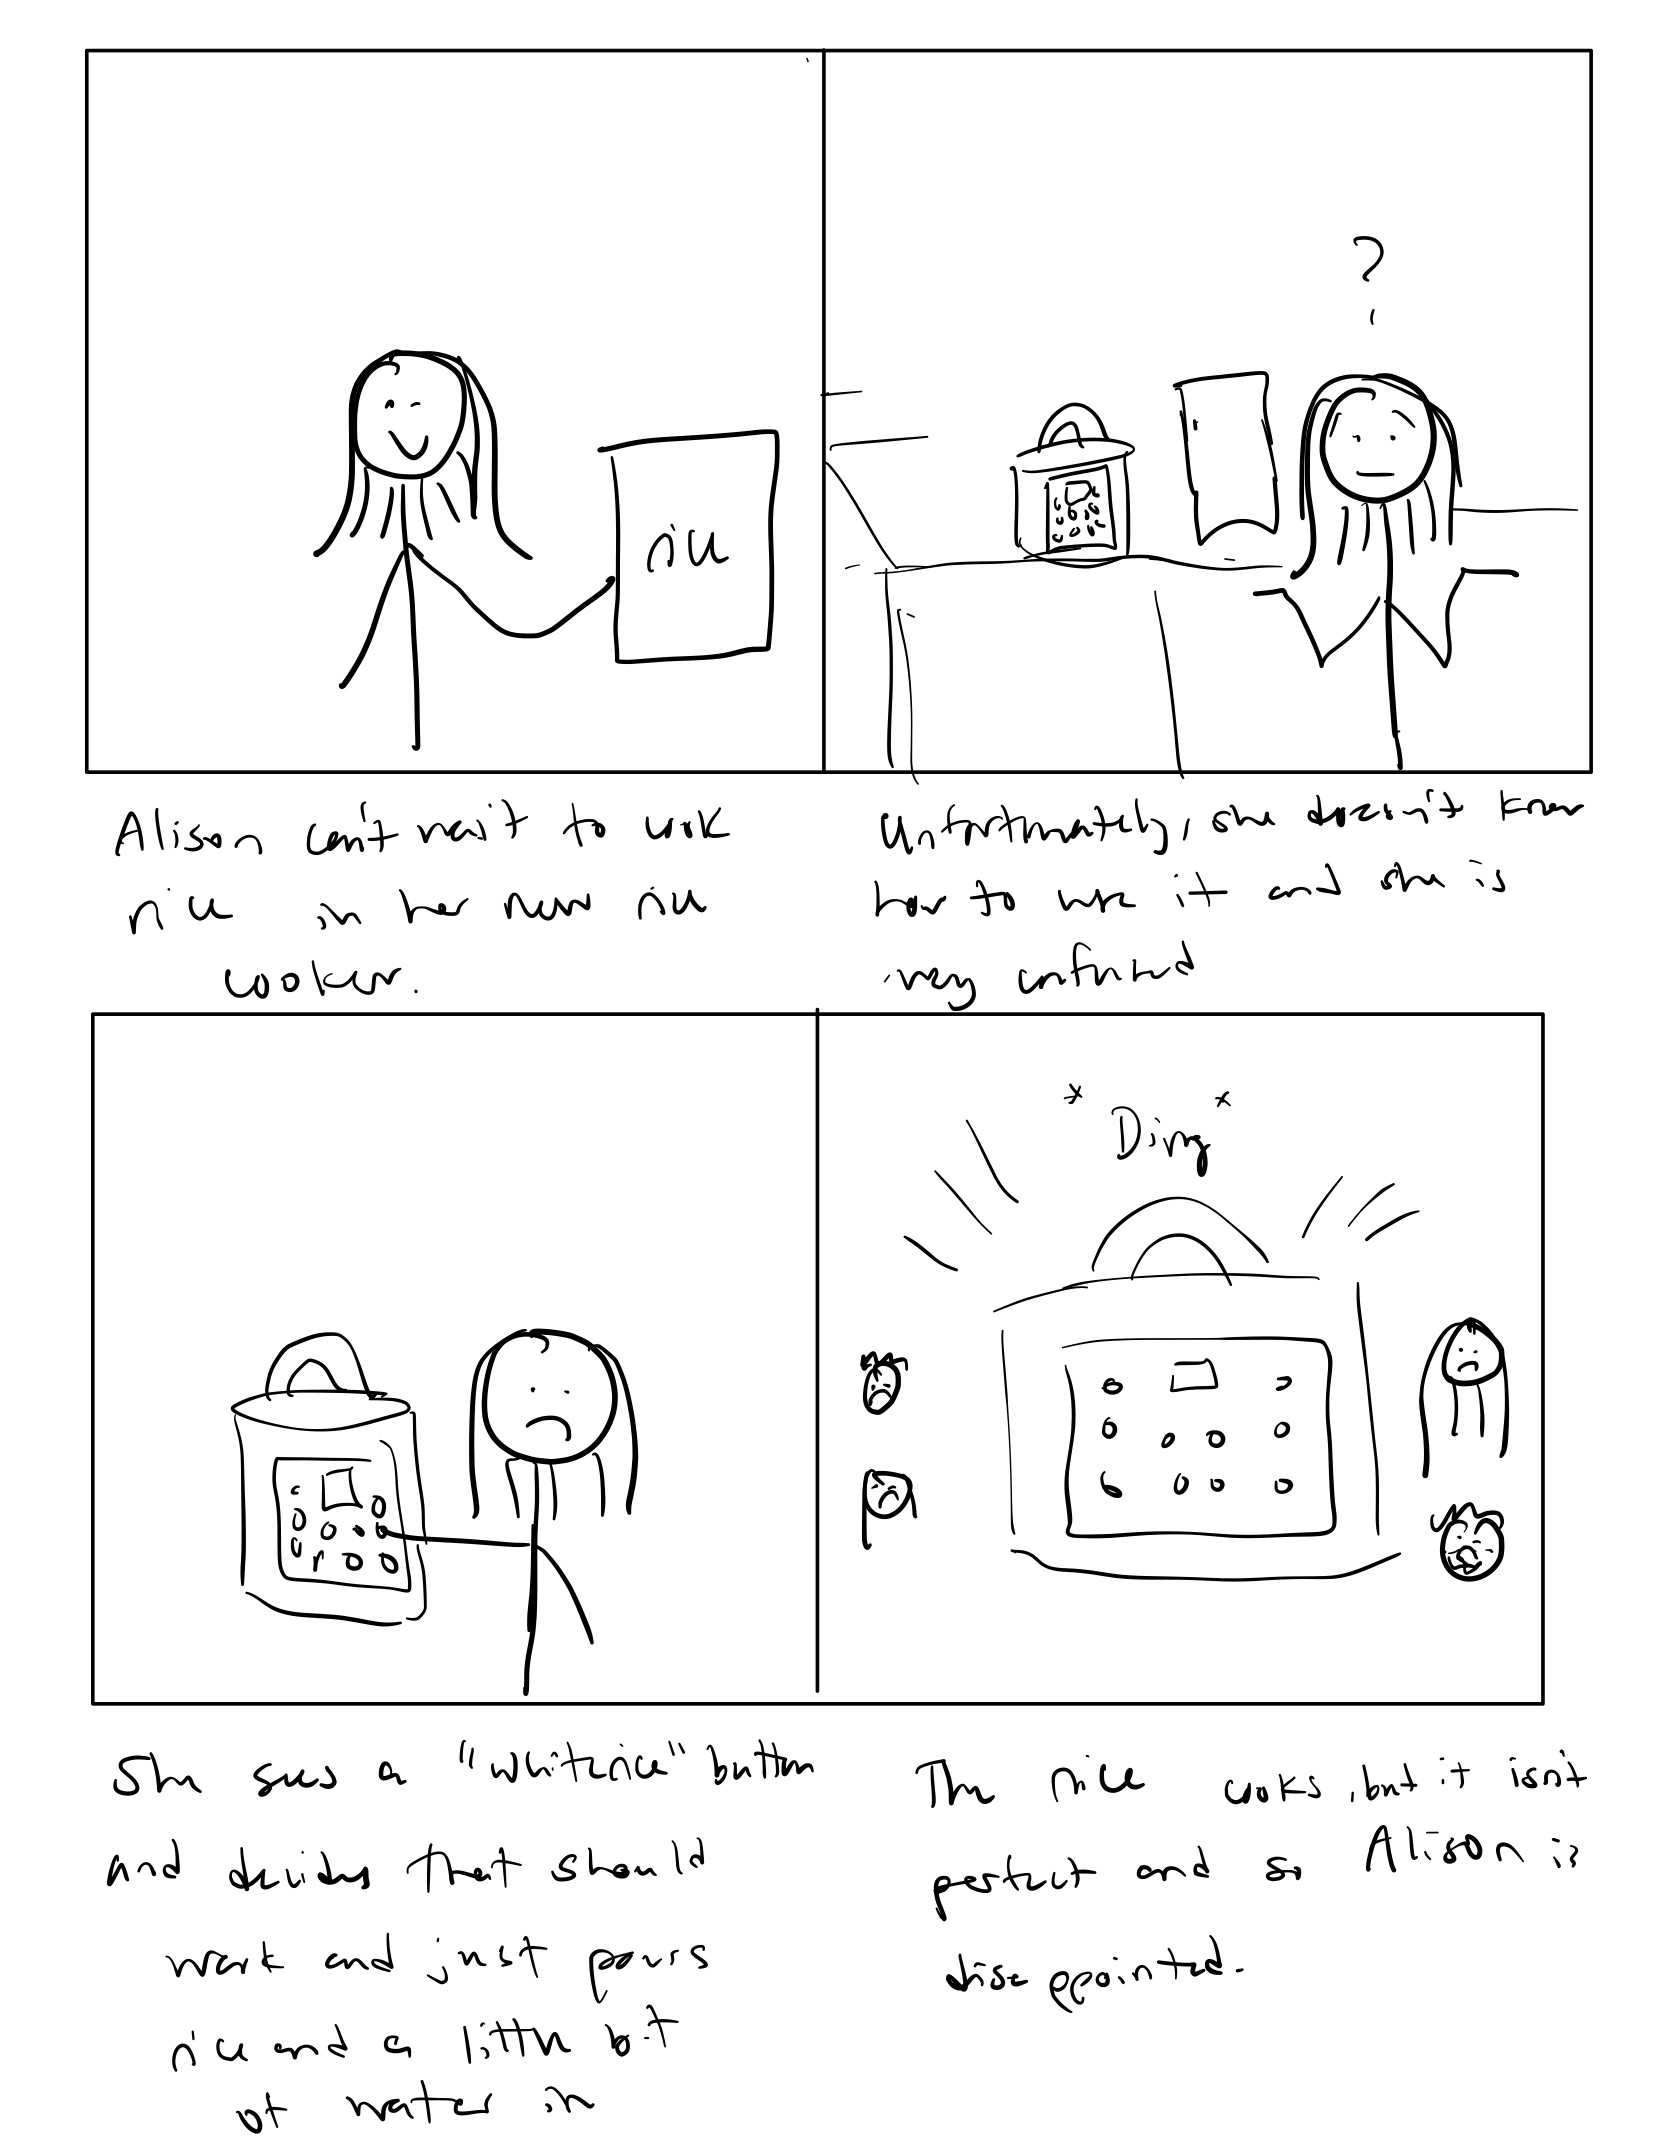 rice
?
Alison can't wait to cook
rice in her new rice
cooker.
Unfortunately, she doesn't know
how to use it and she is
very confused
*Ding*
She sees a "white rice" button
and decides that should
work and just pours
rice and a little bit
of water in
The rice cooks, but it isn't
perfect and so Alison is
disappointed.